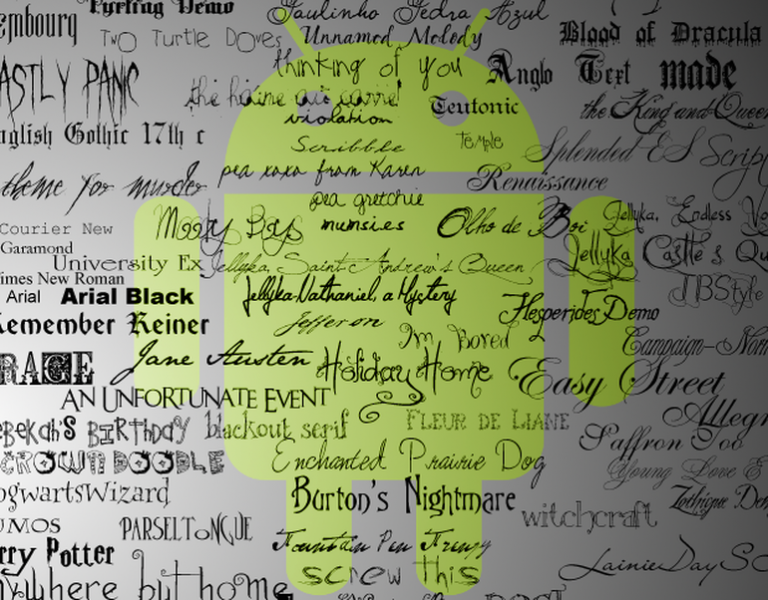 Demo
Paulinho Pedra Azul
embourg
Two Turtle Doves
Unnamed Melody
Blood of Dracula
thinking of you
ASTLY PANIC
Anglo Text
made
violation
Teutonic
the King and Queen
nglish Gothic 17th c
Scribble
Temple
Splended ES Script
pea xoxo from Karen
theme for murder
Renaissance
pea gretchie
Courier New
Moony Boys
mumsies
Olho de Boi
Jellyka, Endless Vo
Garamond
University Ex
Jellyka, Saint-Andrew's Queen
Jellyka Castle's Qu
Times New Roman
Arial
Arial Black
Jellyka Nathaniel, a Mystery
Hesperides Demo
JBStyle
Remember Reiner
Jefferson
I'm Bored
Campaign-Norm
RAGE
Jane Austen
Holiday Home
Easy Street
AN UNFORTUNATE EVENT
Allegr
EBEKAH'S BIRTHDAY
blackout serif
FLEUR DE LIANE
Saffron Too
CROWN DOODLE
Enchanted Prairie Dog
Young Love E
ogwartsWizard
Burton's Nightmare
witchcraft
Zothique De
UMOS
PARSELTONGUE
Fountain Pen Frenzy
rry Potter
LainieDaySC
nywhere but home
screw this